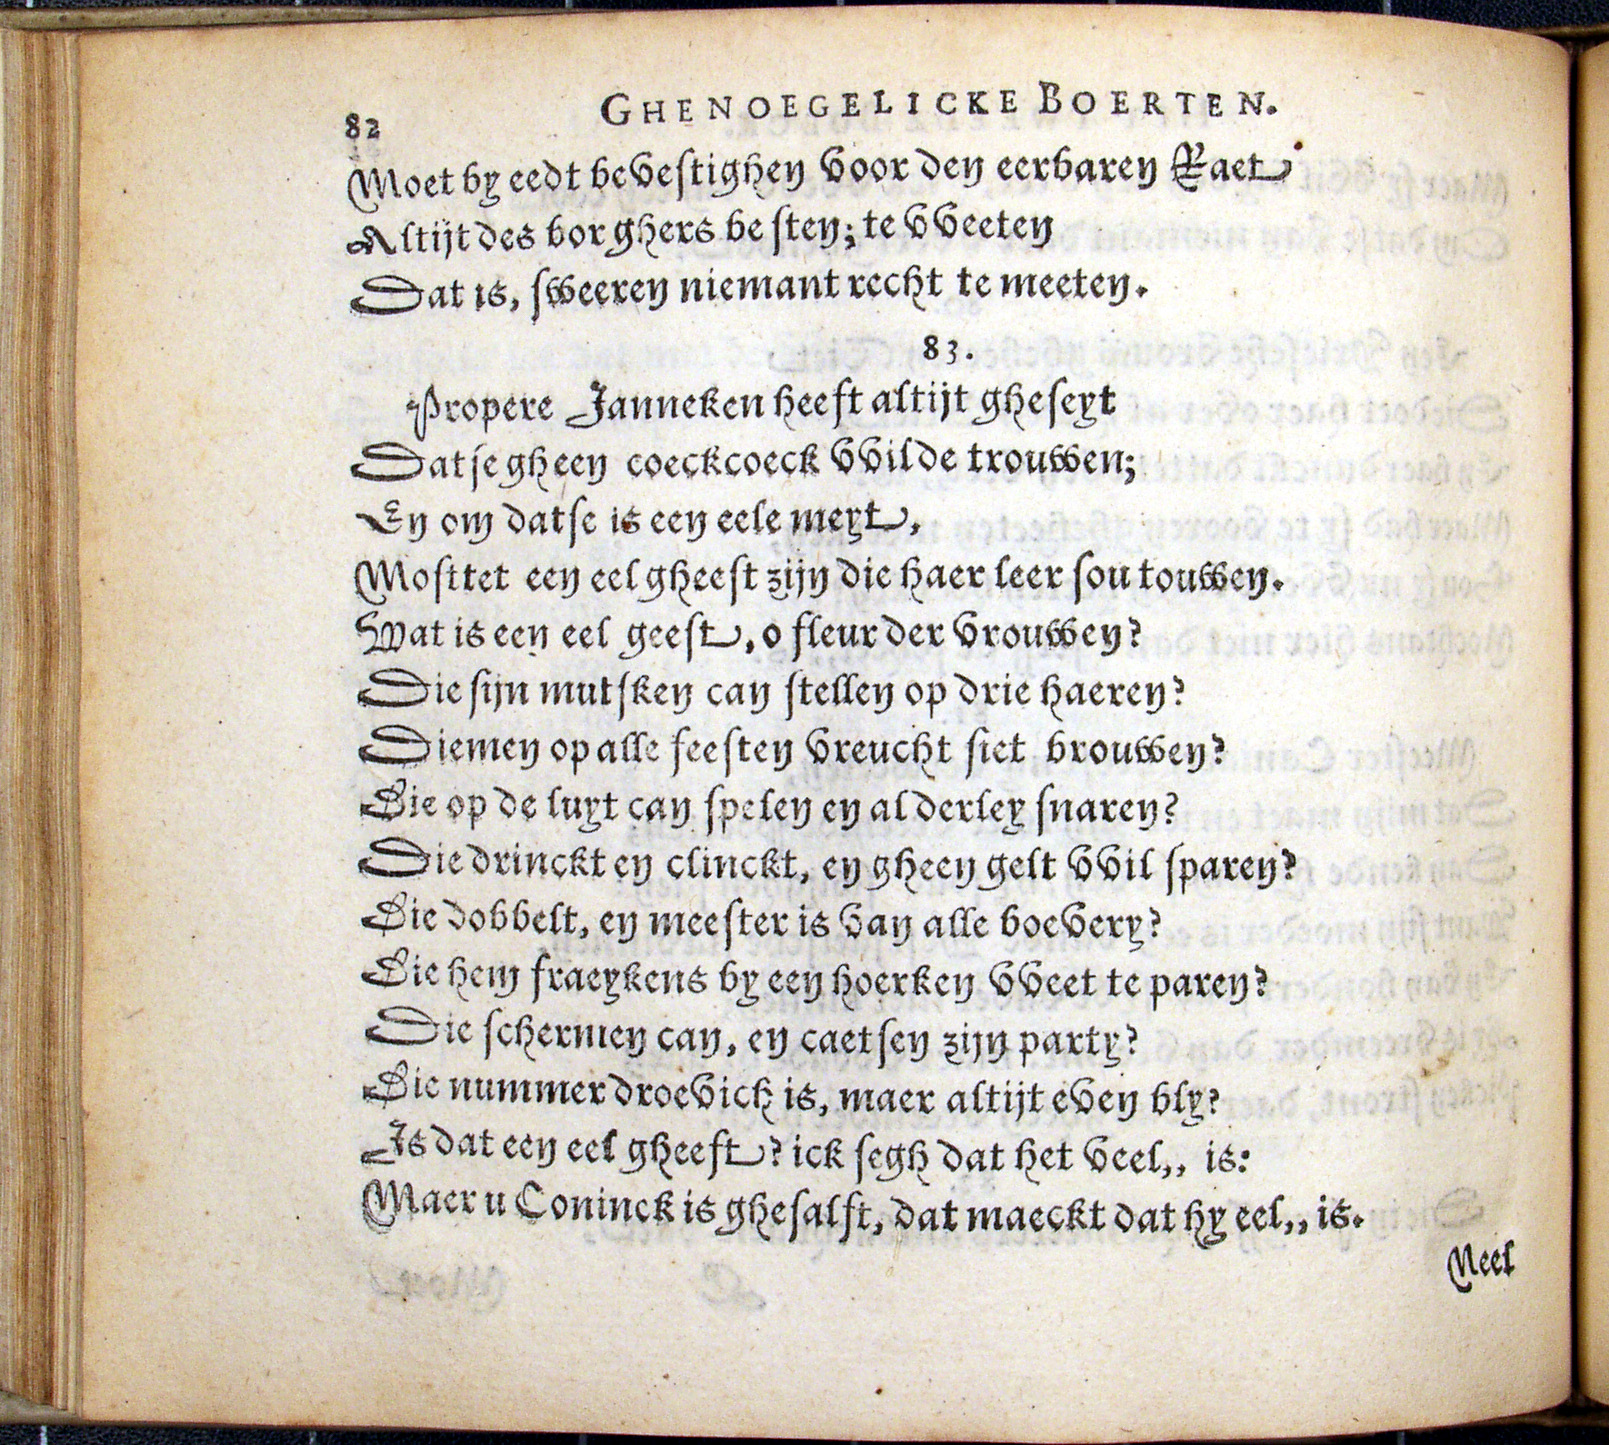 82
GHENOEGELICKE BOERTEN.
Moet by eedt bevestighen voor den eerbaren Raet
Altijt des borghers besten; te vveeten
Dat is, sweeren niemant recht te meeten.
83.
Propere Janneken heeft altijt gheseyt
Datse gheen coeckcoeck vvilde trouwen;
En om datse is een eele meyt,
Mosttet een eel gheest zijn die haer leer sou touwen.
Wat is een eel geest, o fleur der vrouwen?
Die sijn mutsken can stellen op drie haeren?
Diemen op alle feesten vreucht siet brouwen?
Die op de luyt can spelen en alderley snaren?
Die drinckt en clinckt, en gheen gelt vvil sparen?
Die dobbelt, en meester is van alle boevery?
Die hem fraeykens by een hoerken vveet te paren?
Die schermen can, en caetsen zijn party?
Die nummer droevich is, maer altijt even bly?
Is dat een eel gheest? ick segh dat het veel,, is:
Maer u Coninck is ghesalft, dat maeckt dat hy eel,, is.
Neel